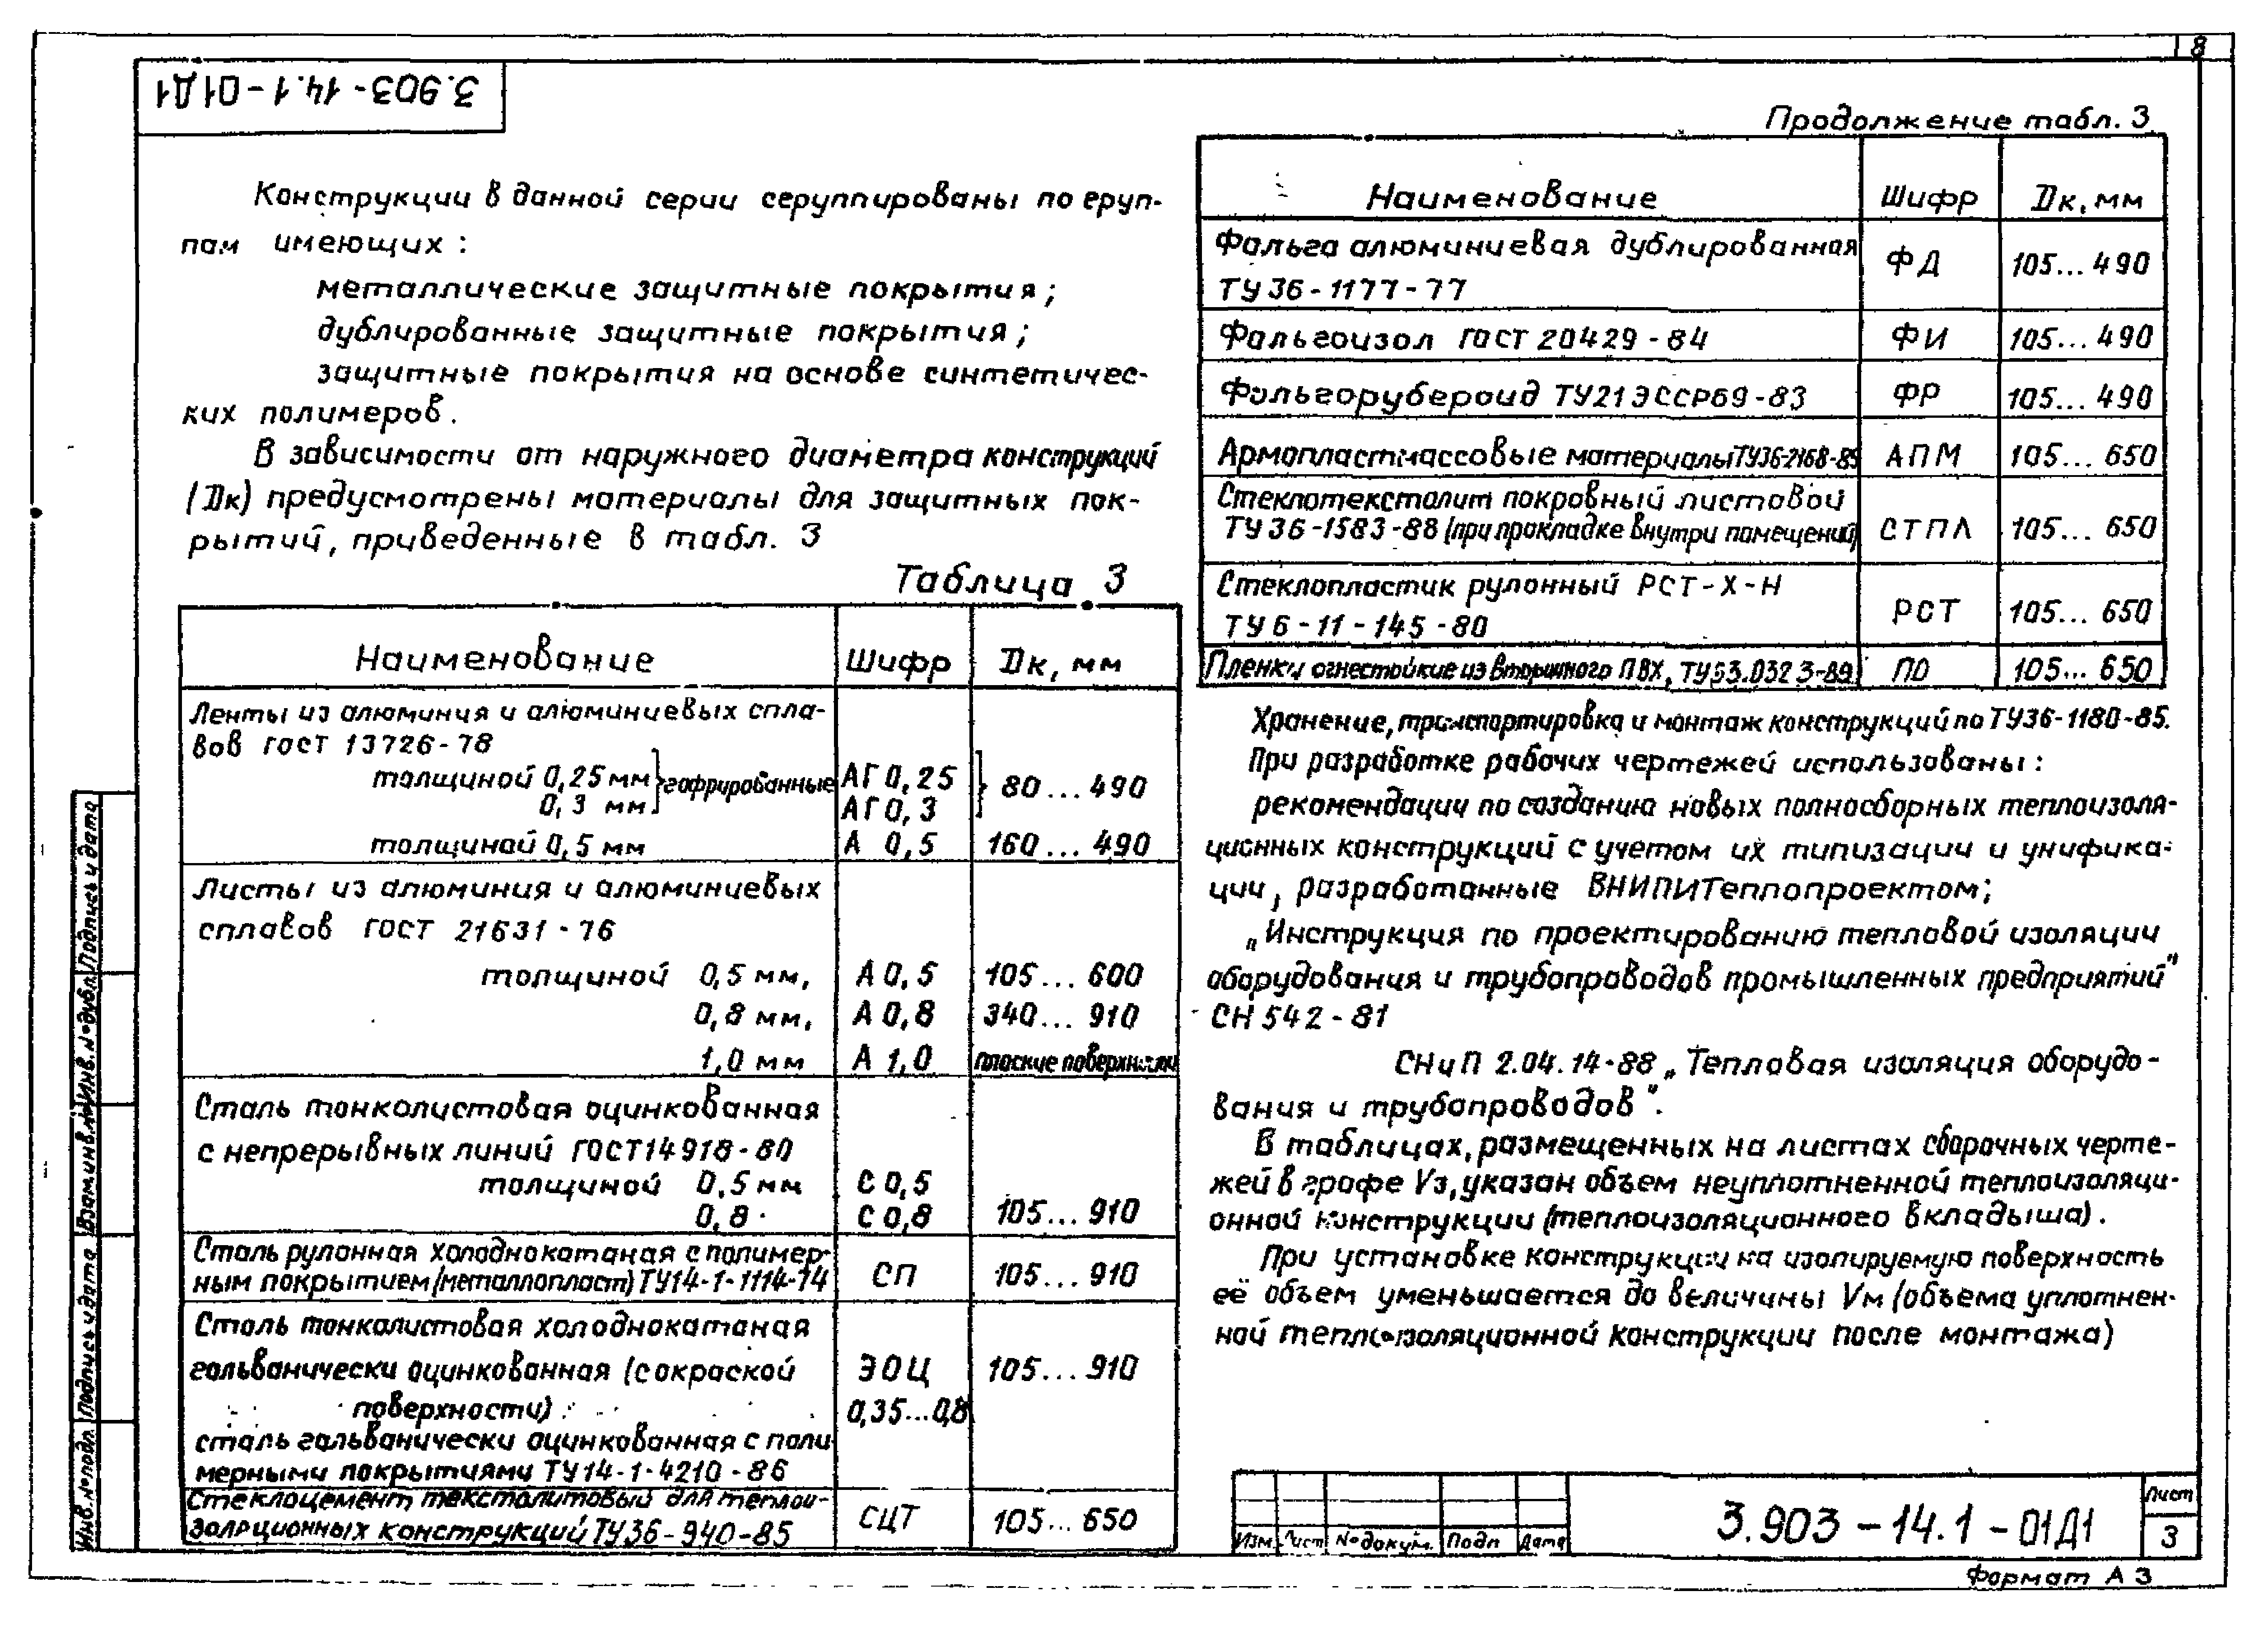 8
3.903-14.1-01Д1
Конструкции в данной серии сгруппированы по груп-
пам имеющих:
металлические защитные покрытия;
дублированные защитные покрытия;
защитные покрытия на основе синтетичес-
ких полимеров.
В зависимости от наружного диаметра конструкций
(Dк) предусмотрены материалы для защитных пок-
рытий, приведенные в табл. 3
Таблица 3
Наименование Шифр Dк, мм
Ленты из алюминия и алюминиевых спла-
вов ГОСТ 13726-78
толщиной 0,25 мм } гофрированные АГ 0,25 } 80...490
0,3 мм АГ 0,3
толщиной 0,5 мм А 0,5 160...490
Листы из алюминия и алюминиевых
сплавов ГОСТ 21631-76
толщиной 0,5 мм, А 0,5 105...600
0,8 мм, А 0,8 340...910
1,0 мм А 1,0 плоские поверхности
Сталь тонколистовая оцинкованная
с непрерывных линий ГОСТ 14918-80
толщиной 0,5 мм С 0,5
0,8 С 0,8 105...910
Сталь рулонная холоднокатаная с полимер-
ным покрытием (металлопласт) ТУ14-1-1114-74 СП 105...910
Сталь тонколистовая холоднокатаная
гальванически оцинкованная (с окраской ЭОЦ 105...910
поверхности) 0,35...0,8
сталь гальванически оцинкованная с поли-
мерными покрытиями ТУ14-1-4210-86
Стеклоцемент текстолитовый для теплои-
золяционных конструкций ТУ36-940-85 СЦТ 105...650
Продолжение табл. 3
Наименование Шифр Dк, мм
Фольга алюминиевая дублированная
ТУ 36-1177-77 ФД 105...490
Фольгоизол ГОСТ 20429-84 ФИ 105...490
Фольгорубероид ТУ21ЭССР69-83 ФР 105...490
Армопластмассовые материалы ТУ36-2168-85 АПМ 105...650
Стеклотекстолит покровный листовой
ТУ 36-1583-88 (при прокладке внутри помещений) СТПЛ 105...650
Стеклопластик рулонный РСТ-Х-Н
ТУ 6-11-145-80 РСТ 105...650
Пленки огнестойкие из вторичного ПВХ, ТУ63.032 3-89 ПО 105...650
Хранение, транспортировка и монтаж конструкций по ТУ36-1180-85.
При разработке рабочих чертежей использованы:
рекомендации по созданию новых полносборных теплоизоля-
ционных конструкций с учетом их типизации и унифика-
ции, разработанные ВНИПИТеплопроектом;
„Инструкция по проектированию тепловой изоляции
оборудования и трубопроводов промышленных предприятий"
СН 542-81
СНиП 2.04.14-88 „Тепловая изоляция оборудо-
вания и трубопроводов".
В таблицах, размещенных на листах сборочных черте-
жей в графе Vз, указан объем неуплотненной теплоизоляци-
онной конструкции (теплоизоляционного вкладыша).
При установке конструкции на изолируемую поверхность
её объем уменьшается до величины Vм (объема уплотнен-
ной теплоизоляционной конструкции после монтажа)
Изм. Лист № докум. Подп Дата
3.903-14.1-01Д1
Лист
3
Формат А3
Инв. № подл. Подпись и дата Взам. инв. № Инв. № дубл. Подпись и дата